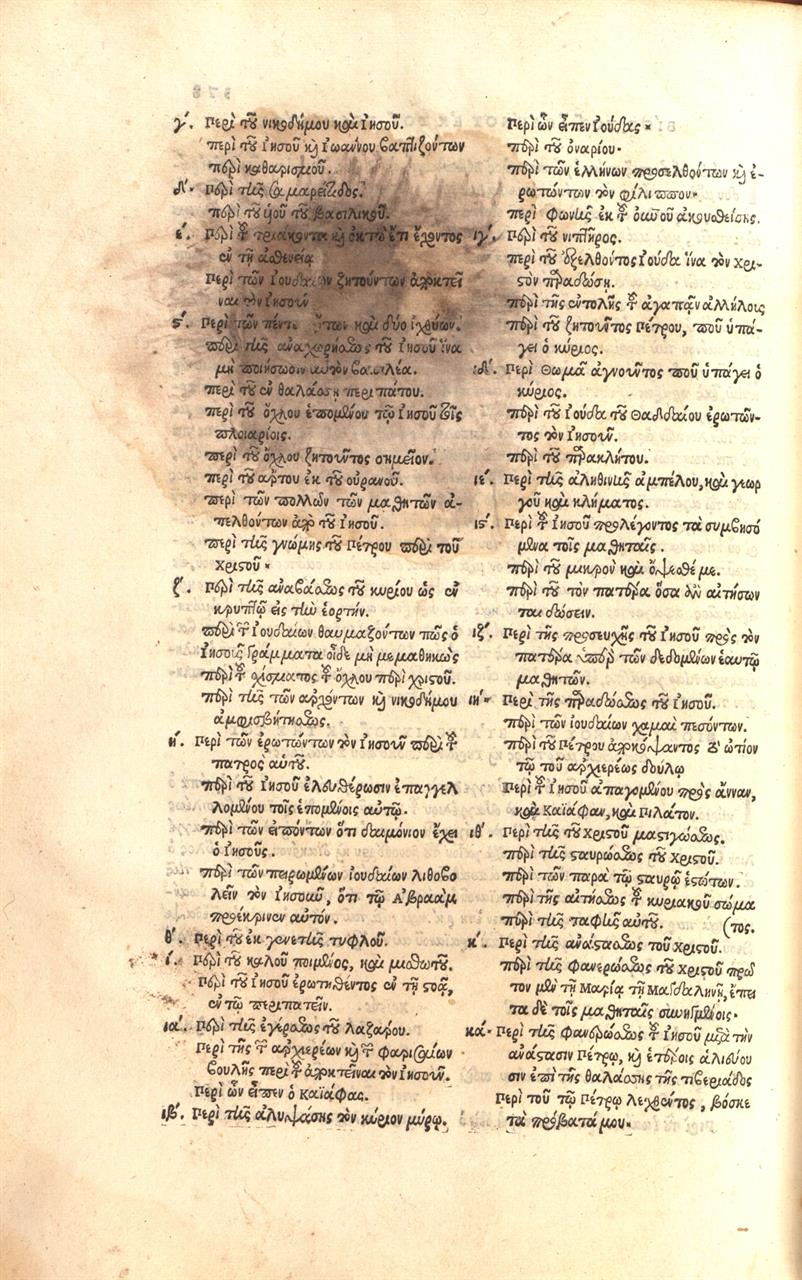 γ΄. Περὶ τοῦ νικοδήμου καὶ Ἰησοῦ.
περὶ τοῦ Ἰησοῦ κỳ Ἰωάννου βαπτιζόντων
περὶ καθαρισμοῦ.
δ΄. Περὶ τῆς Σαμαρείτιδος.
περὶ τοῦ υἱοῦ τοῦ βασιλικοῦ.
ε΄. Περὶ τοῦ τριάκοντα καὶ ὀκτὼ ἔτη ἔχοντος
ἐν τῇ ἀσθενείᾳ
Περὶ τῶν Ἰουδαίων ζητούντων ἀποκτεῖ
ναι τὸν Ἰησοῦν
ς΄. Περὶ τῶν πέντε καὶ δύο ἰχθύων.
περὶ τῆς ἀναχωρήσεως τοῦ Ἰησοῦ ἵνα
μὴ ποιήσωσιν αὐτὸν βασιλέα.
περὶ τοῦ ἐν θαλάσσῃ περιπάτου.
περὶ τοῦ ὄχλου ἑπομένου τῷ Ἰησοῦ τοῖς
πλοιαρίοις.
περὶ τοῦ ὄχλου ζητοῦντος σημεῖον.
περὶ τοῦ ἄρτου ἐκ τοῦ οὐρανοῦ.
περὶ τῶν πολλῶν τῶν μαθητῶν ἀ-
πελθόντων ἀπὸ τοῦ Ἰησοῦ.
περὶ τῆς γνώμης τοῦ Πέτρου περὶ τοῦ
Χριστοῦ.
ζ΄. Περὶ τῆς ἀναβάσεως τοῦ κυρίου ὡς ἐν
κρυπτῷ εἰς τὴν ἑορτήν.
περὶ τῶν Ἰουδαίων θαυμαζόντων πῶς ὁ
Ἰησοῦς γράμματα οἶδε μὴ μεμαθηκὼς
περὶ τοῦ σχίσματος τοῦ ὄχλου περὶ χριστοῦ.
περὶ τῆς τῶν ἀρχόντων καὶ νικοδήμου
ἀμφισβητήσεως.
η΄. Περὶ τῶν ἐρωτώντων τὸν Ἰησοῦν περὶ τοῦ
πατρὸς αὐτοῦ.
περὶ τοῦ Ἰησοῦ ἐλευθέρωσιν ἐπαγγελ
λομένου τοῖς ἑπομένοις αὐτῷ.
περὶ τῶν εἰπόντων ὅτι δαιμόνιον ἔχει
ὁ Ἰησοῦς.
περὶ τῶν πειρωμένων ἰουδαίων λιθοβο
λεῖν τὸν Ἰησοῦν, ὅτι τῷ Ἀβραὰμ
προέκρινεν αὐτόν.
θ΄. Περὶ τοῦ ἐκ γενετῆς τυφλοῦ.
ι΄. Περὶ τοῦ καλοῦ ποιμένος, καὶ μισθωτοῦ.
Περὶ τοῦ Ἰησοῦ ἐρωτηθέντος ἐν τῇ στοᾷ,
ἐν τῷ περιπατεῖν.
ια΄. Περὶ τῆς ἐγέρσεως τοῦ λαζάρου.
Περὶ τῆς τῶν ἀρχιερέων καὶ τῶν φαρισαίων
βουλῆς περὶ τοῦ ἀποκτεῖναι τὸν Ἰησοῦν.
Περὶ ὧν εἶπεν ὁ Καϊάφας.
ιβ΄. Περὶ τῆς ἀλειψάσης τὸν κύριον μύρῳ.
Περὶ ὧν εἶπεν Ἰούδας.
περὶ τοῦ ὀναρίου.
περὶ τῶν ἑλλήνων προσελθόντων καὶ ἐ-
ρωτώντων τὸν φίλιππον.
περὶ φωνῆς ἐκ τοῦ οὐρανοῦ ἀκουσθείσης.
ιγ΄. Περὶ τοῦ νιπτῆρος.
περὶ τοῦ ἐξελθόντος Ἰούδα ἵνα τὸν χρι-
στὸν παραδώσῃ.
περὶ τῆς ἐντολῆς τοῦ ἀγαπᾶν ἀλλήλους
περὶ τοῦ ζητοῦντος Πέτρου, ποῦ ὑπά-
γει ὁ κύριος.
ιδ΄. Περὶ Θωμᾶ ἀγνοοῦντος ποῦ ὑπάγει ὁ
κύριος.
περὶ τοῦ Ἰούδα τοῦ Θαδδαίου ἐρωτῶν-
τος τὸν Ἰησοῦν.
περὶ τοῦ παρακλήτου.
ιε΄. Περὶ τῆς ἀληθινῆς ἀμπέλου, καὶ γεωρ
γοῦ καὶ κλήματος.
ις΄. Περὶ τοῦ Ἰησοῦ προλέγοντος τὰ συμβησό
μενα τοῖς μαθηταῖς.
περὶ τοῦ μικρὸν καὶ ὄψεσθέ με.
περὶ τοῦ τὸν πατέρα ὅσα ἂν αἰτήσων
ται δώσειν.
ιζ΄. Περὶ τῆς προσευχῆς τοῦ Ἰησοῦ πρὸς τὸν
πατέρα ὑπὲρ τῶν δεδομένων ἑαυτῷ
μαθητῶν.
ιη΄. Περὶ τῆς παραδόσεως τοῦ Ἰησοῦ.
περὶ τῶν ἰουδαίων χαμαὶ πεσόντων.
περὶ τοῦ Πέτρου ἀποκόψαντος τὸ ὠτίον
τῷ τοῦ ἀρχιερέως δούλῳ
Περὶ τοῦ Ἰησοῦ ἀπαγομένου πρὸς ἄνναν,
καὶ Καϊάφαν, καὶ Πιλάτον.
ιθ΄. Περὶ τῆς τοῦ Χριστοῦ μαστιγώσεως.
περὶ τῆς σταυρώσεως τοῦ Χριστοῦ.
περὶ τῶν παρὰ τῷ σταυρῷ ἑστώτων.
περὶ τῆς αἰτήσεως τοῦ κυριακοῦ σώμα
περὶ τῆς ταφῆς αὐτοῦ. (τος.
κ΄. Περὶ τῆς ἀναστάσεως τοῦ Χριστοῦ.
περὶ τῆς φανερώσεως τοῦ Χριστοῦ πρῶ
τον μὲν τῇ Μαρίᾳ τῇ Μαγδαληνῇ, ἔπει
τα δὲ τοῖς μαθηταῖς συνηγμένοις.
κά. Περὶ τῆς φανερώσεως τοῦ Ἰησοῦ μετὰ τὴν
ἀνάστασιν Πέτρῳ, καὶ ἑτέροις ἁλιεύου
σιν ἐπὶ τῆς θαλάσσης τῆς τιβεριάδος
Περὶ τοῦ τῷ Πέτρῳ λεχθέντος, βόσκε
τὰ πρόβατά μου.